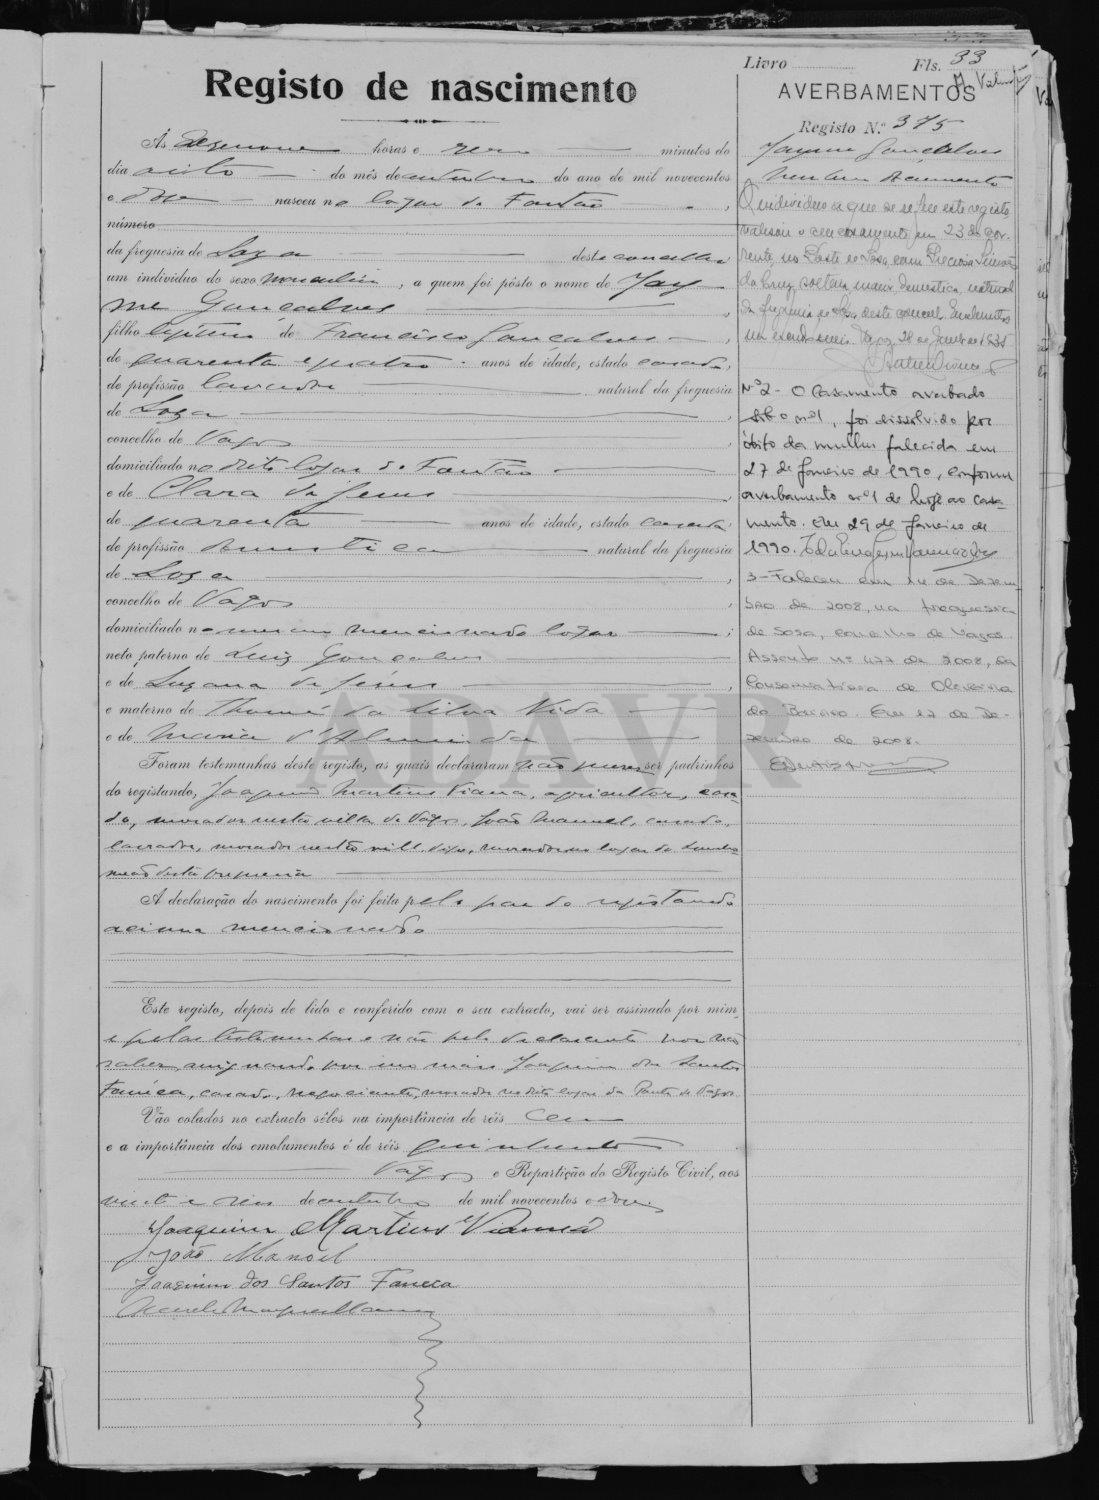 Livro Fls. 33
Registo de nascimento
AVERBAMENTOS
Registo N.º 375
Ás dezenove horas e zero minutos do
dia oito do mês de outubro do ano de mil novecentos
e doze nasceu no logar de Fontão,
número
da freguesia de Soza deste concelho
um individuo do sexo masculino, a quem foi pôsto o nome de Jay-
me Gonçalves,
filho legitimo de Francisco Gonçalves,
de quarenta e quatro anos de idade, estado casado,
de profissão lavrador natural da freguesia
de Soza,
concelho de Vagos,
domiciliado no dito logar de Fontão
e de Clara de Jesus,
de quarenta anos de idade, estado casada,
de profissão domestica natural da freguesia
de Soza,
concelho de Vagos,
domiciliado no mesmo mencionado logar;
neto paterno de Luiz Gonçalves
e de Suzana de Jesus,
e materno de Thomé da Silva Vida
e de Maria d'Almeida
Foram testemunhas deste registo, as quais declararam não serem padrinhos
do registando, Joaquim Martins Viana, agricultor, casa-
do, morador nesta villa de Vagos, João Manuel, casado,
lavrador, morador no logar de
desta freguesia
A declaração do nascimento foi feita pelo pae do registando
acima mencionado
Este registo, depois de lido e conferido com o seu extracto, vai ser assinado por mim,
e pelas testemunhas e não pelo declarante por não
saber, assignando por Joaquim dos Santos
Faneca, casado, negociante, morador no dito logar da Ponte de Vagos
Vão colados no extracto sêlos na importância de réis Cem
e a importância dos emolumentos é de réis quinhentos
Vagos e Repartição do Registo Civil, aos
vinte e seis de outubro de mil novecentos e doze.
Joaquim Martins Vianna
João Manoel
Joaquim dos Santos Faneca
Jayme Gonçalves
O individuo a que se refere este registo,
realisou o seu casamento em 23 do cor-
rente, no Posto de Sosa, com Preciosa Simões
da Cruz, solteira, maior, domestica, natural
da freguesia de Sosa, deste concelho.
Vagos, 28 de
Nº2 - O casamento averbado
sob o nº1, foi dissolvido por
óbito da mulher falecida em
27 de Janeiro de 1990, conforme
averbamento nº1 de hoje ao casa-
mento. Em 29 de Janeiro de
1990.
3-Faleceu em 14 de Dezem-
bro de 2008, na freguesia
de Sosa, concelho de Vagos.
Assento nº 477 de 2008, da
Conservatória de Oliveira
do Bairro. Em 17 de De-
zembro de 2008.
ADAVR